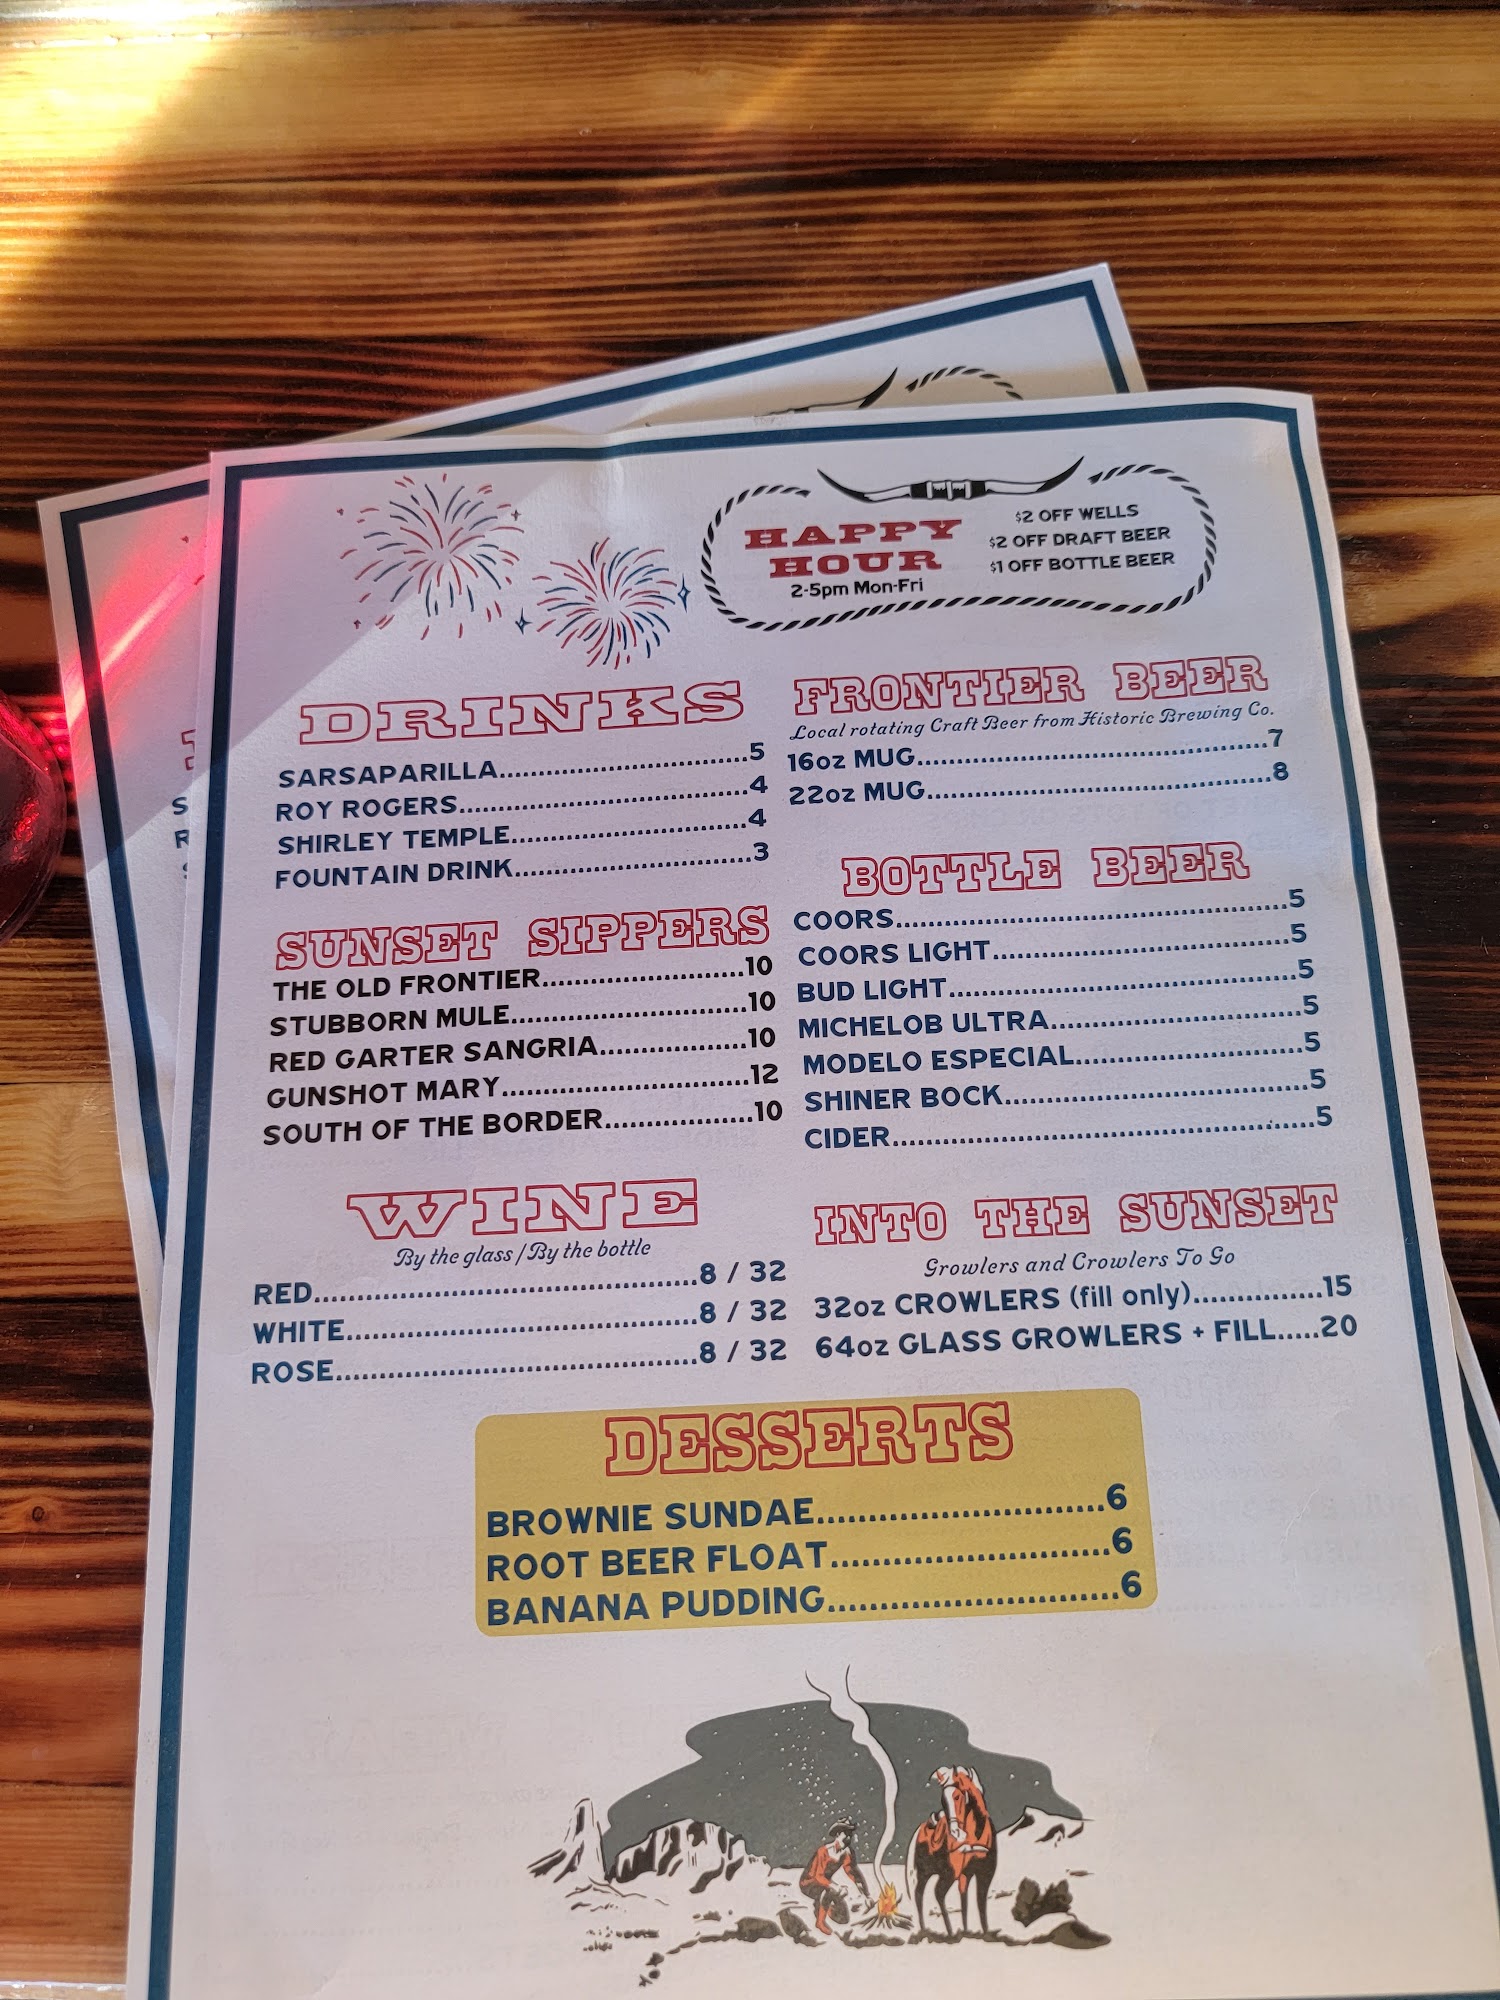 HAPPY
HOUR
2-5pm Mon-Fri
$2 OFF WELLS
$2 OFF DRAFT BEER
$1 OFF BOTTLE BEER
DRINKS
SARSAPARILLA...............................5
ROY ROGERS....................................4
SHIRLEY TEMPLE.............................4
FOUNTAIN DRINK.............................3
SUNSET SIPPERS
THE OLD FRONTIER.........................10
STUBBORN MULE.............................10
RED GARTER SANGRIA..................10
GUNSHOT MARY..............................12
SOUTH OF THE BORDER..................10
WINE
By the glass / By the bottle
RED................................................8 / 32
WHITE............................................8 / 32
ROSE..............................................8 / 32
FRONTIER BEER
Local rotating Craft Beer from Historic Brewing Co.
16oz MUG...........................................7
22oz MUG..........................................8
BOTTLE BEER
COORS.................................................5
COORS LIGHT.....................................5
BUD LIGHT...........................................5
MICHELOB ULTRA................................5
MODELO ESPECIAL............................5
SHINER BOCK.....................................5
CIDER....................................................5
INTO THE SUNSET
Growlers and Crowlers To Go
32oz CROWLERS (fill only)...............15
64oz GLASS GROWLERS + FILL.....20
DESSERTS
BROWNIE SUNDAE.............................6
ROOT BEER FLOAT............................6
BANANA PUDDING.............................6